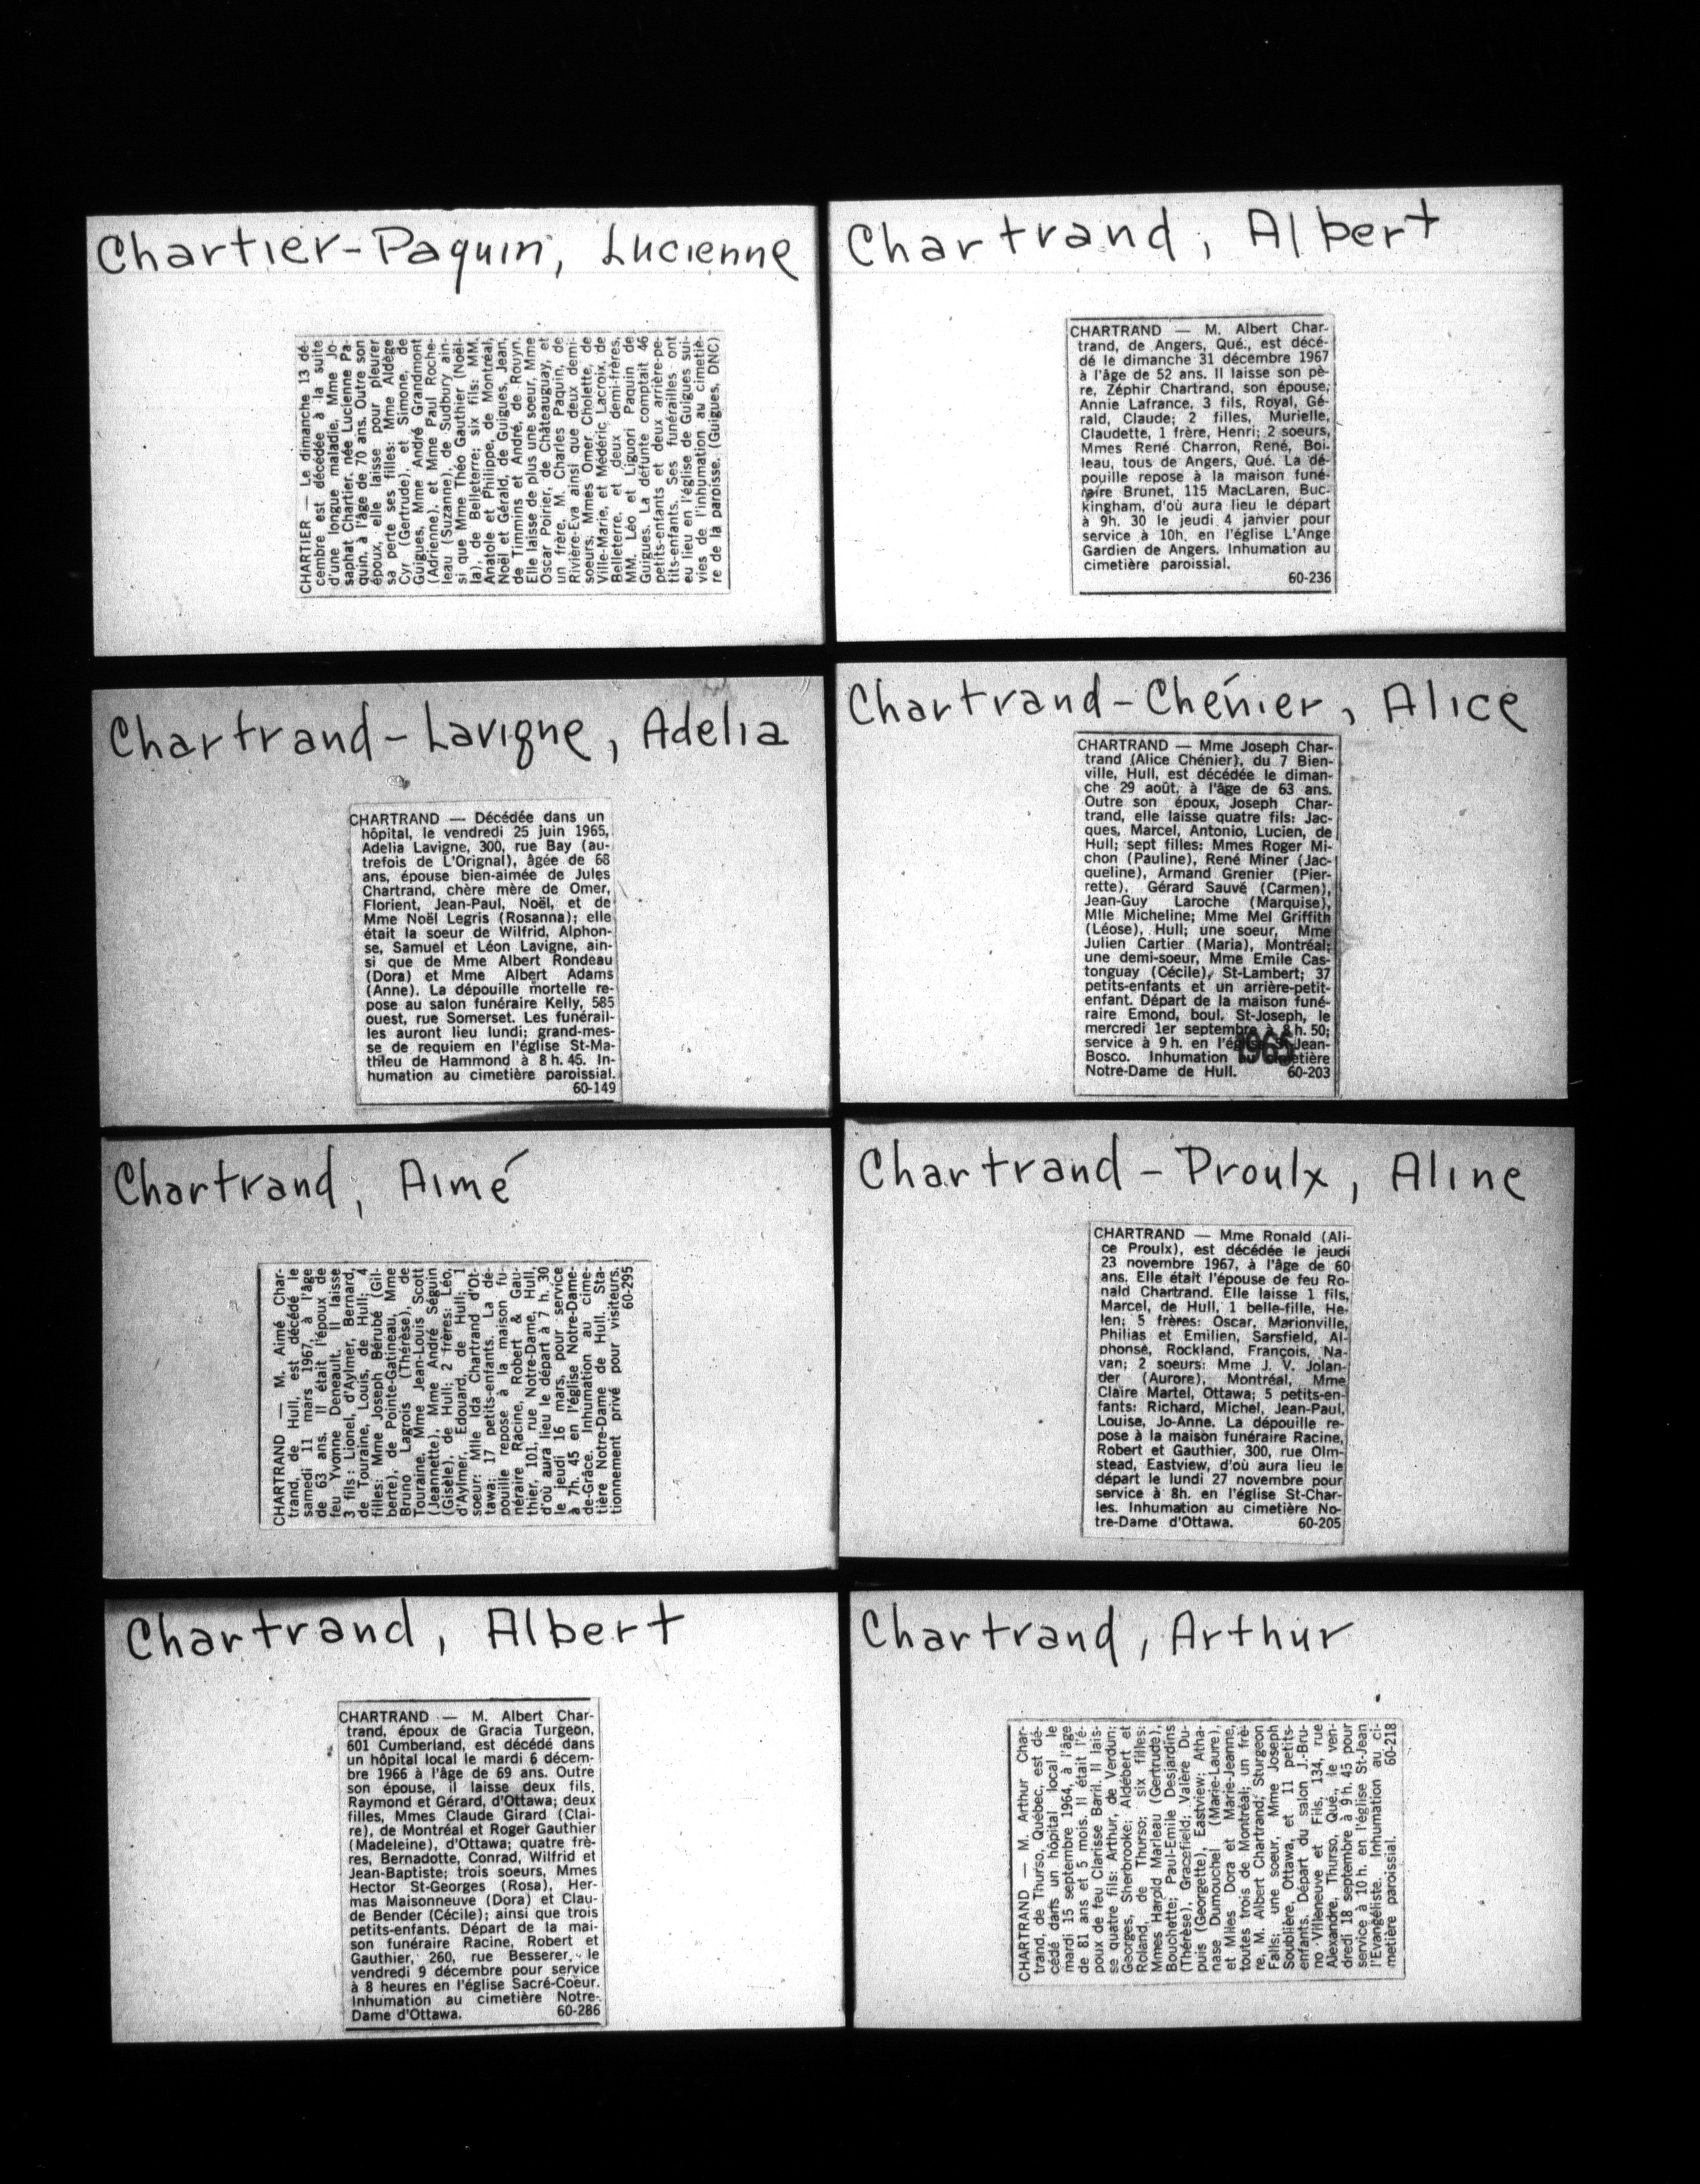 Chartier-Paquin, Lucienne
CHARTIER — Le dimanche 13 dé-
cembre est décédée à la suite
d'une longue maladie, Mme Jo-
saphat Chartier, née Lucienne Pa-
quin, à l'âge de 70 ans. Outre son
époux, elle laisse pour pleurer
sa perte ses filles: Mme Aldège
Cyr (Gertrude), et Simone, de
Guigues, Mme André Grandmont
(Adrienne), et Mme Paul Roche-
leau (Suzanne), de Sudbury ain-
si que Mme Théo Gauthier (Noël-
la), de Belleterre; six fils: MM.
Anatole et Philippe, de Montréal,
Noël et Gérald, de Guigues, Jean,
de Timmins et André, de Rouyn.
Elle laisse de plus une soeur, Mme
Oscar Poirier, de Châteauguay, et
un frère, M. Charles Paquin, de
Rivière-Eva ainsi que deux demi-
soeurs, Mmes Omer Cholette, de
Ville-Marie, et Médéric Lacroix, de
Belleterre, et deux demi-frères,
MM. Léo et Liguori Paquin de
Guigues. La défunte comptait 46
petits-enfants et deux arrière-pe-
tits-enfants. Ses funérailles ont
eu lieu en l'église de Guigues sui-
vies de l'inhumation au cimetiè-
re de la paroisse. (Guigues, DNC)
Chartrand, Albert
CHARTRAND — M. Albert Char-
trand, de Angers, Qué., est décé-
dé le dimanche 31 décembre 1967
à l'âge de 52 ans. Il laisse son pè-
re, Zéphir Chartrand, son épouse,
Annie Lafrance, 3 fils, Royal, Gé-
rald, Claude; 2 filles, Murielle,
Claudette, 1 frère, Henri; 2 soeurs,
Mmes René Charron, René, Boi-
leau, tous de Angers, Qué. La dé-
pouille repose à la maison funé-
raire Brunet, 115 MacLaren, Buc-
kingham, d'où aura lieu le départ
à 9h. 30 le jeudi 4 janvier pour
service à 10h. en l'église L'Ange
Gardien de Angers. Inhumation au
cimetière paroissial.
60-236
Chartrand-Lavigne, Adelia
CHARTRAND — Décédée dans un
hôpital, le vendredi 25 juin 1965,
Adelia Lavigne, 300, rue Bay (au-
trefois de L'Orignal), âgée de 68
ans, épouse bien-aimée de Jules
Chartrand, chère mère de Omer,
Florient, Jean-Paul, Noël, et de
Mme Noël Legris (Rosanna); elle
était la soeur de Wilfrid, Alphon-
se, Samuel et Léon Lavigne, ain-
si que de Mme Albert Rondeau
(Dora) et Mme Albert Adams
(Anne). La dépouille mortelle re-
pose au salon funéraire Kelly, 585
ouest, rue Somerset. Les funérail-
les auront lieu lundi; grand-mes-
se de requiem en l'église St-Ma-
thieu de Hammond à 8 h. 45. In-
humation au cimetière paroissial.
60-149
Chartrand-Chénier, Alice
CHARTRAND — Mme Joseph Char-
trand (Alice Chénier), du 7 Bien-
ville, Hull, est décédée le diman-
che 29 août, à l'âge de 63 ans.
Outre son époux, Joseph Char-
trand, elle laisse quatre fils: Jac-
ques, Marcel, Antonio, Lucien, de
Hull; sept filles: Mmes Roger Mi-
chon (Pauline), René Miner (Jac-
queline), Armand Grenier (Pier-
rette), Gérard Sauvé (Carmen),
Jean-Guy Laroche (Marquise),
Mlle Micheline; Mme Mel Griffith
(Léose), Hull; une soeur, Mme
Julien Cartier (Maria), Montréal;
une demi-soeur, Mme Emile Cas-
tonguay (Cécile), St-Lambert; 37
petits-enfants et un arrière-petit-
enfant. Départ de la maison funé-
raire Emond, boul. St-Joseph, le
mercredi 1er septembre à 8 h. 50;
service à 9 h. en l'église St-Jean-
Bosco. Inhumation au cimetière
Notre-Dame de Hull. 60-203
1965
Chartrand, Aimé
CHARTRAND — M. Aimé Char-
trand, de Hull, est décédé le
samedi 11 mars 1967, à l'âge
de 63 ans. Il était l'époux de
feu Yvonne Deneault. Il laisse
3 fils: Lionel, d'Aylmer, Bernard,
de Touraine, Louis, de Hull; 4
filles: Mme Joseph Bérubé (Gil-
berte), de Pointe-Gatineau, Mme
Bruno Lagrois (Thérèse), de
Touraine, Mme Jean-Louis Scott
(Jeannette), Mme André Séguin
(Gisèle), de Hull; 2 frères: Léo,
d'Aylmer, Edouard, de Hull; 1
soeur: Mlle Ida Chartrand d'Ot-
tawa; 17 petits-enfants. La dé-
pouille repose à la maison fu-
néraire Racine, Robert & Gau-
thier, 101, rue Notre-Dame, Hull,
d'où aura lieu le départ à 7 h. 30
le jeudi 16 mars, pour service
à 7h. 45 en l'église Notre-Dame-
de-Grâce. Inhumation au cime-
tière Notre-Dame de Hull. Sta-
tionnement privé pour visiteurs.
60-295
Chartrand-Proulx, Aline
CHARTRAND — Mme Ronald (Ali-
ce Proulx), est décédée le jeudi
23 novembre 1967, à l'âge de 60
ans. Elle était l'épouse de feu Ro-
nald Chartrand. Elle laisse 1 fils,
Marcel, de Hull, 1 belle-fille, He-
len; 5 frères: Oscar, Marionville,
Philias et Emilien, Sarsfield, Al-
phonse, Rockland, François, Na-
van; 2 soeurs: Mme J. V. Jolan-
der (Aurore), Montréal, Mme
Claire Martel, Ottawa; 5 petits-en-
fants: Richard, Michel, Jean-Paul,
Louise, Jo-Anne. La dépouille re-
pose à la maison funéraire Racine,
Robert et Gauthier, 300, rue Olm-
stead, Eastview, d'où aura lieu le
départ le lundi 27 novembre pour
service à 8h. en l'église St-Char-
les. Inhumation au cimetière No-
tre-Dame d'Ottawa. 60-205
Chartrand, Albert
CHARTRAND — M. Albert Char-
trand, époux de Gracia Turgeon,
601 Cumberland, est décédé dans
un hôpital local le mardi 6 décem-
bre 1966 à l'âge de 69 ans. Outre
son épouse, il laisse deux fils,
Raymond et Gérard, d'Ottawa; deux
filles, Mmes Claude Girard (Clai-
re), de Montréal et Roger Gauthier
(Madeleine), d'Ottawa; quatre frè-
res, Bernadotte, Conrad, Wilfrid et
Jean-Baptiste; trois soeurs, Mmes
Hector St-Georges (Rosa), Her-
mas Maisonneuve (Dora) et Clau-
de Bender (Cécile); ainsi que trois
petits-enfants. Départ de la mai-
son funéraire Racine, Robert et
Gauthier, 260, rue Besserer, le
vendredi 9 décembre pour service
à 8 heures en l'église Sacré-Coeur.
Inhumation au cimetière Notre-
Dame d'Ottawa. 60-286
Chartrand, Arthur
CHARTRAND — M. Arthur Char-
trand, de Thurso, Québec, est dé-
cédé dans un hôpital local le
mardi 15 septembre 1964, à l'âge
de 81 ans et 5 mois. Il était l'é-
poux de feu Clarisse Baril. Il lais-
se quatre fils: Arthur, de Verdun;
Georges, Sherbrooke; Aldébert et
Roland, de Thurso; six filles:
Mmes Harold Marleau (Gertrude),
Bouchette; Paul-Emile Desjardins
(Thérèse), Gracefield; Valère Du-
puis (Georgette), Eastview; Atha-
nase Dumouchel (Marie-Laure),
et Mlles Dora et Marie-Jeanne,
toutes trois de Montréal; un frè-
re, M. Albert Chartrand, Sturgeon
Falls; une soeur, Mme Joseph
Soublière, Ottawa, et 11 petits-
enfants. Départ du salon J.-Bru-
no Villeneuve et Fils, 134, rue
Alexandre, Thurso, Qué., le ven-
dredi 18 septembre à 9 h. 45 pour
service à 10 h. en l'église St-Jean
l'Evangéliste. Inhumation au ci-
metière paroissial. 60-218